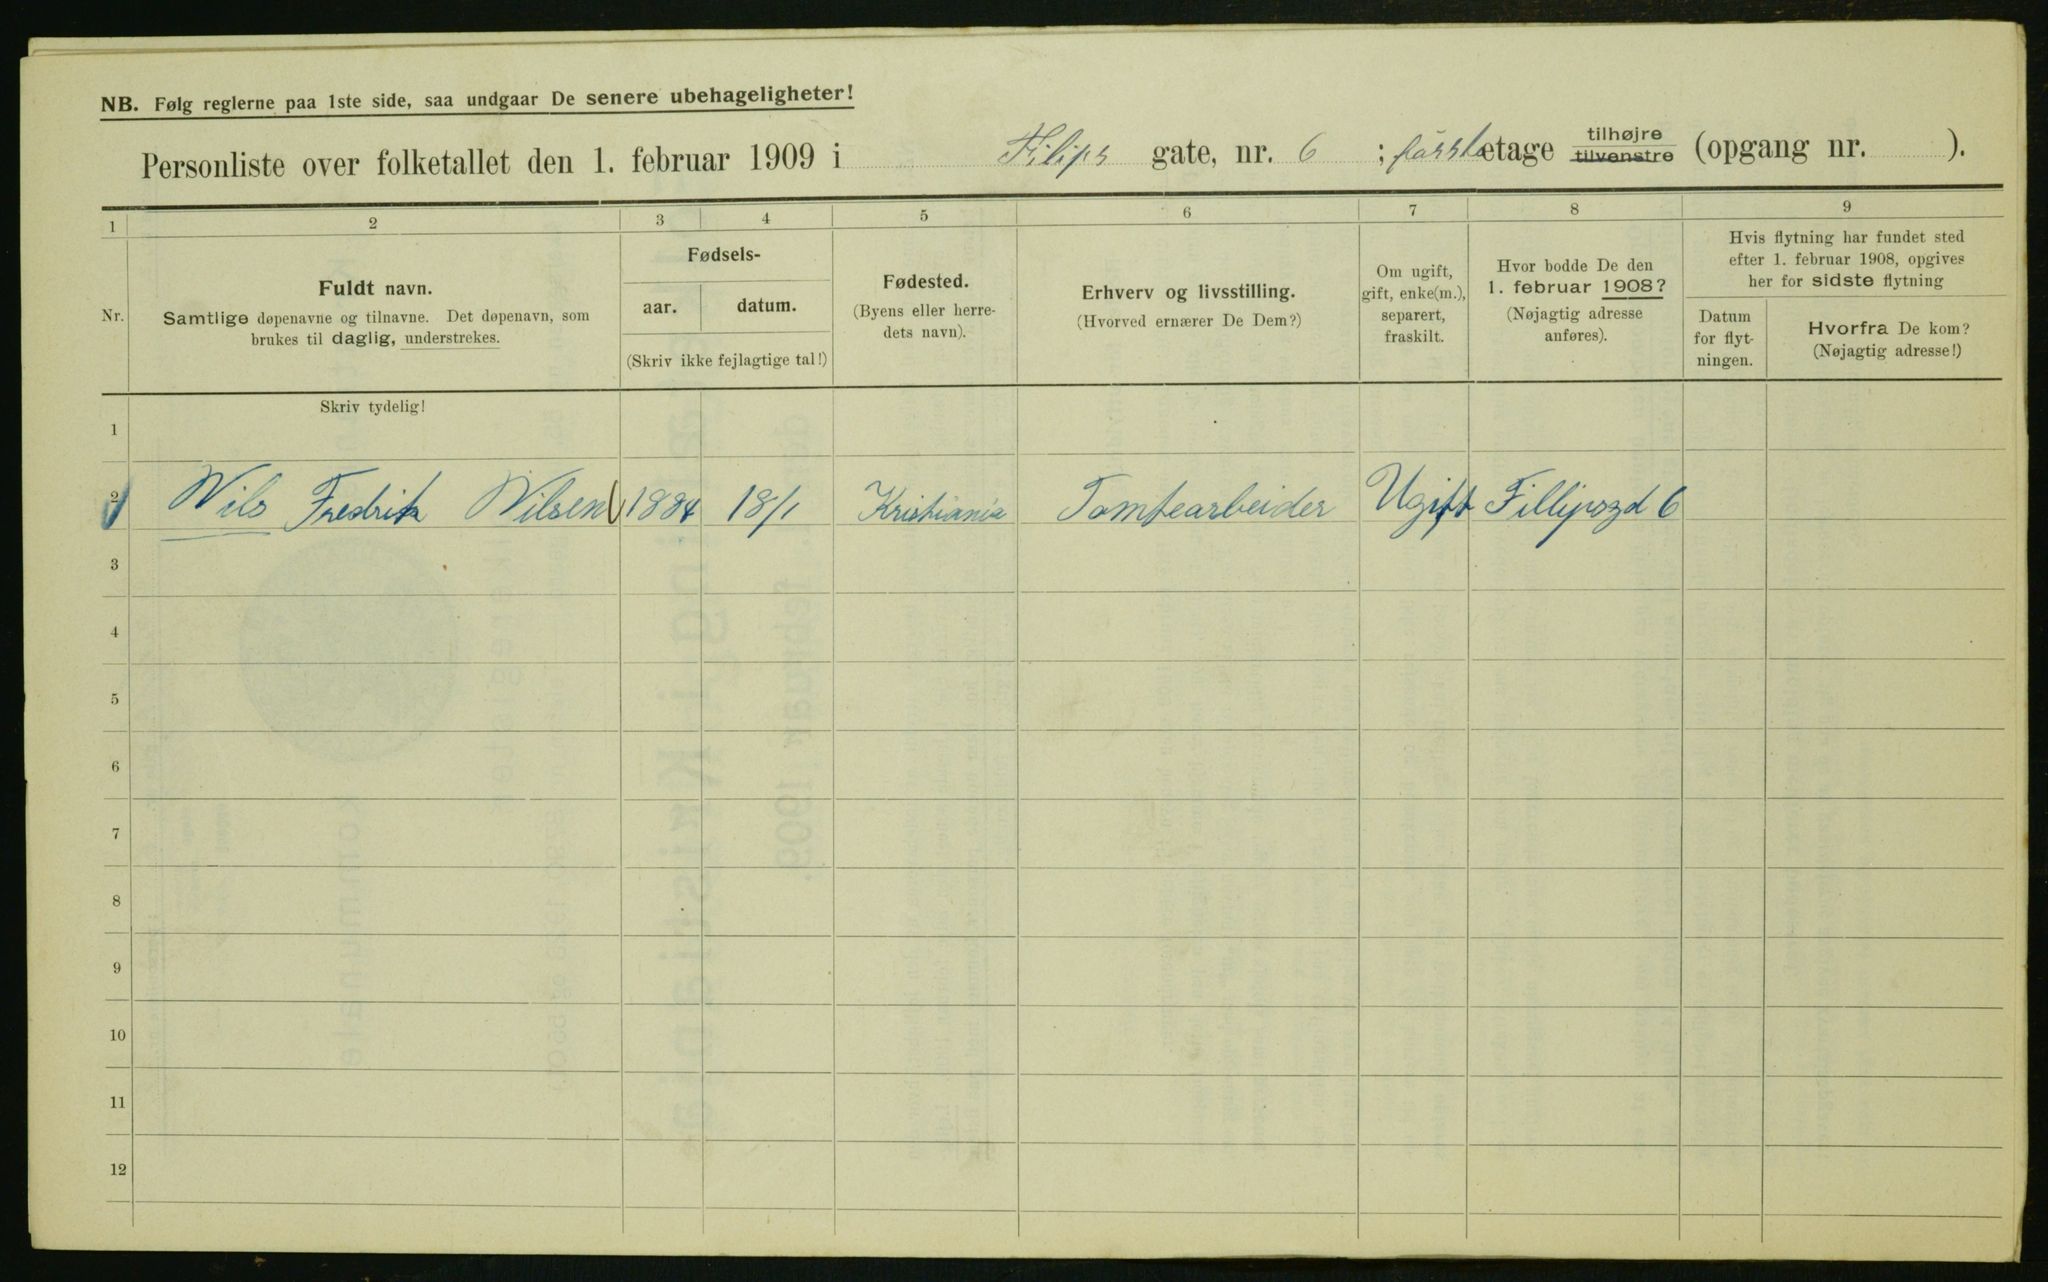 NB. Følg reglerne paa 1ste side, saa undgaar De senere ubehageligheter!
Personliste over folketallet den 1. februar 1909 i Filips gate, nr. 6 ; første etage tilhøjre tilvenstre (opgang nr. ).
1 2 3 4 5 6 7 8 9
Nr.
Fuldt navn.
Samtlige døpenavne og tilnavne. Det døpenavn, som
brukes til daglig, understrekes.
Fødsels-
aar. datum.
(Skriv ikke fejlagtige tal!)
Fødested.
(Byens eller herre-
dets navn).
Erhverv og livsstilling.
(Hvorved ernærer De Dem?)
Om ugift,
gift, enke(m.),
separert,
fraskilt.
Hvor bodde De den
1. februar 1908?
(Nøjagtig adresse
anføres).
Hvis flytning har fundet sted
efter 1. februar 1908, opgives
her for sidste flytning
Datum
for flyt-
ningen.
Hvorfra De kom?
(Nøjagtig adresse!)
Skriv tydelig!
1
2 Nils Fredrik Nilsen 1884 18/1 Kristiania Tomtearbeider Ugift Fillipsgd 6
3
4
5
6
7
8
9
10
11
12